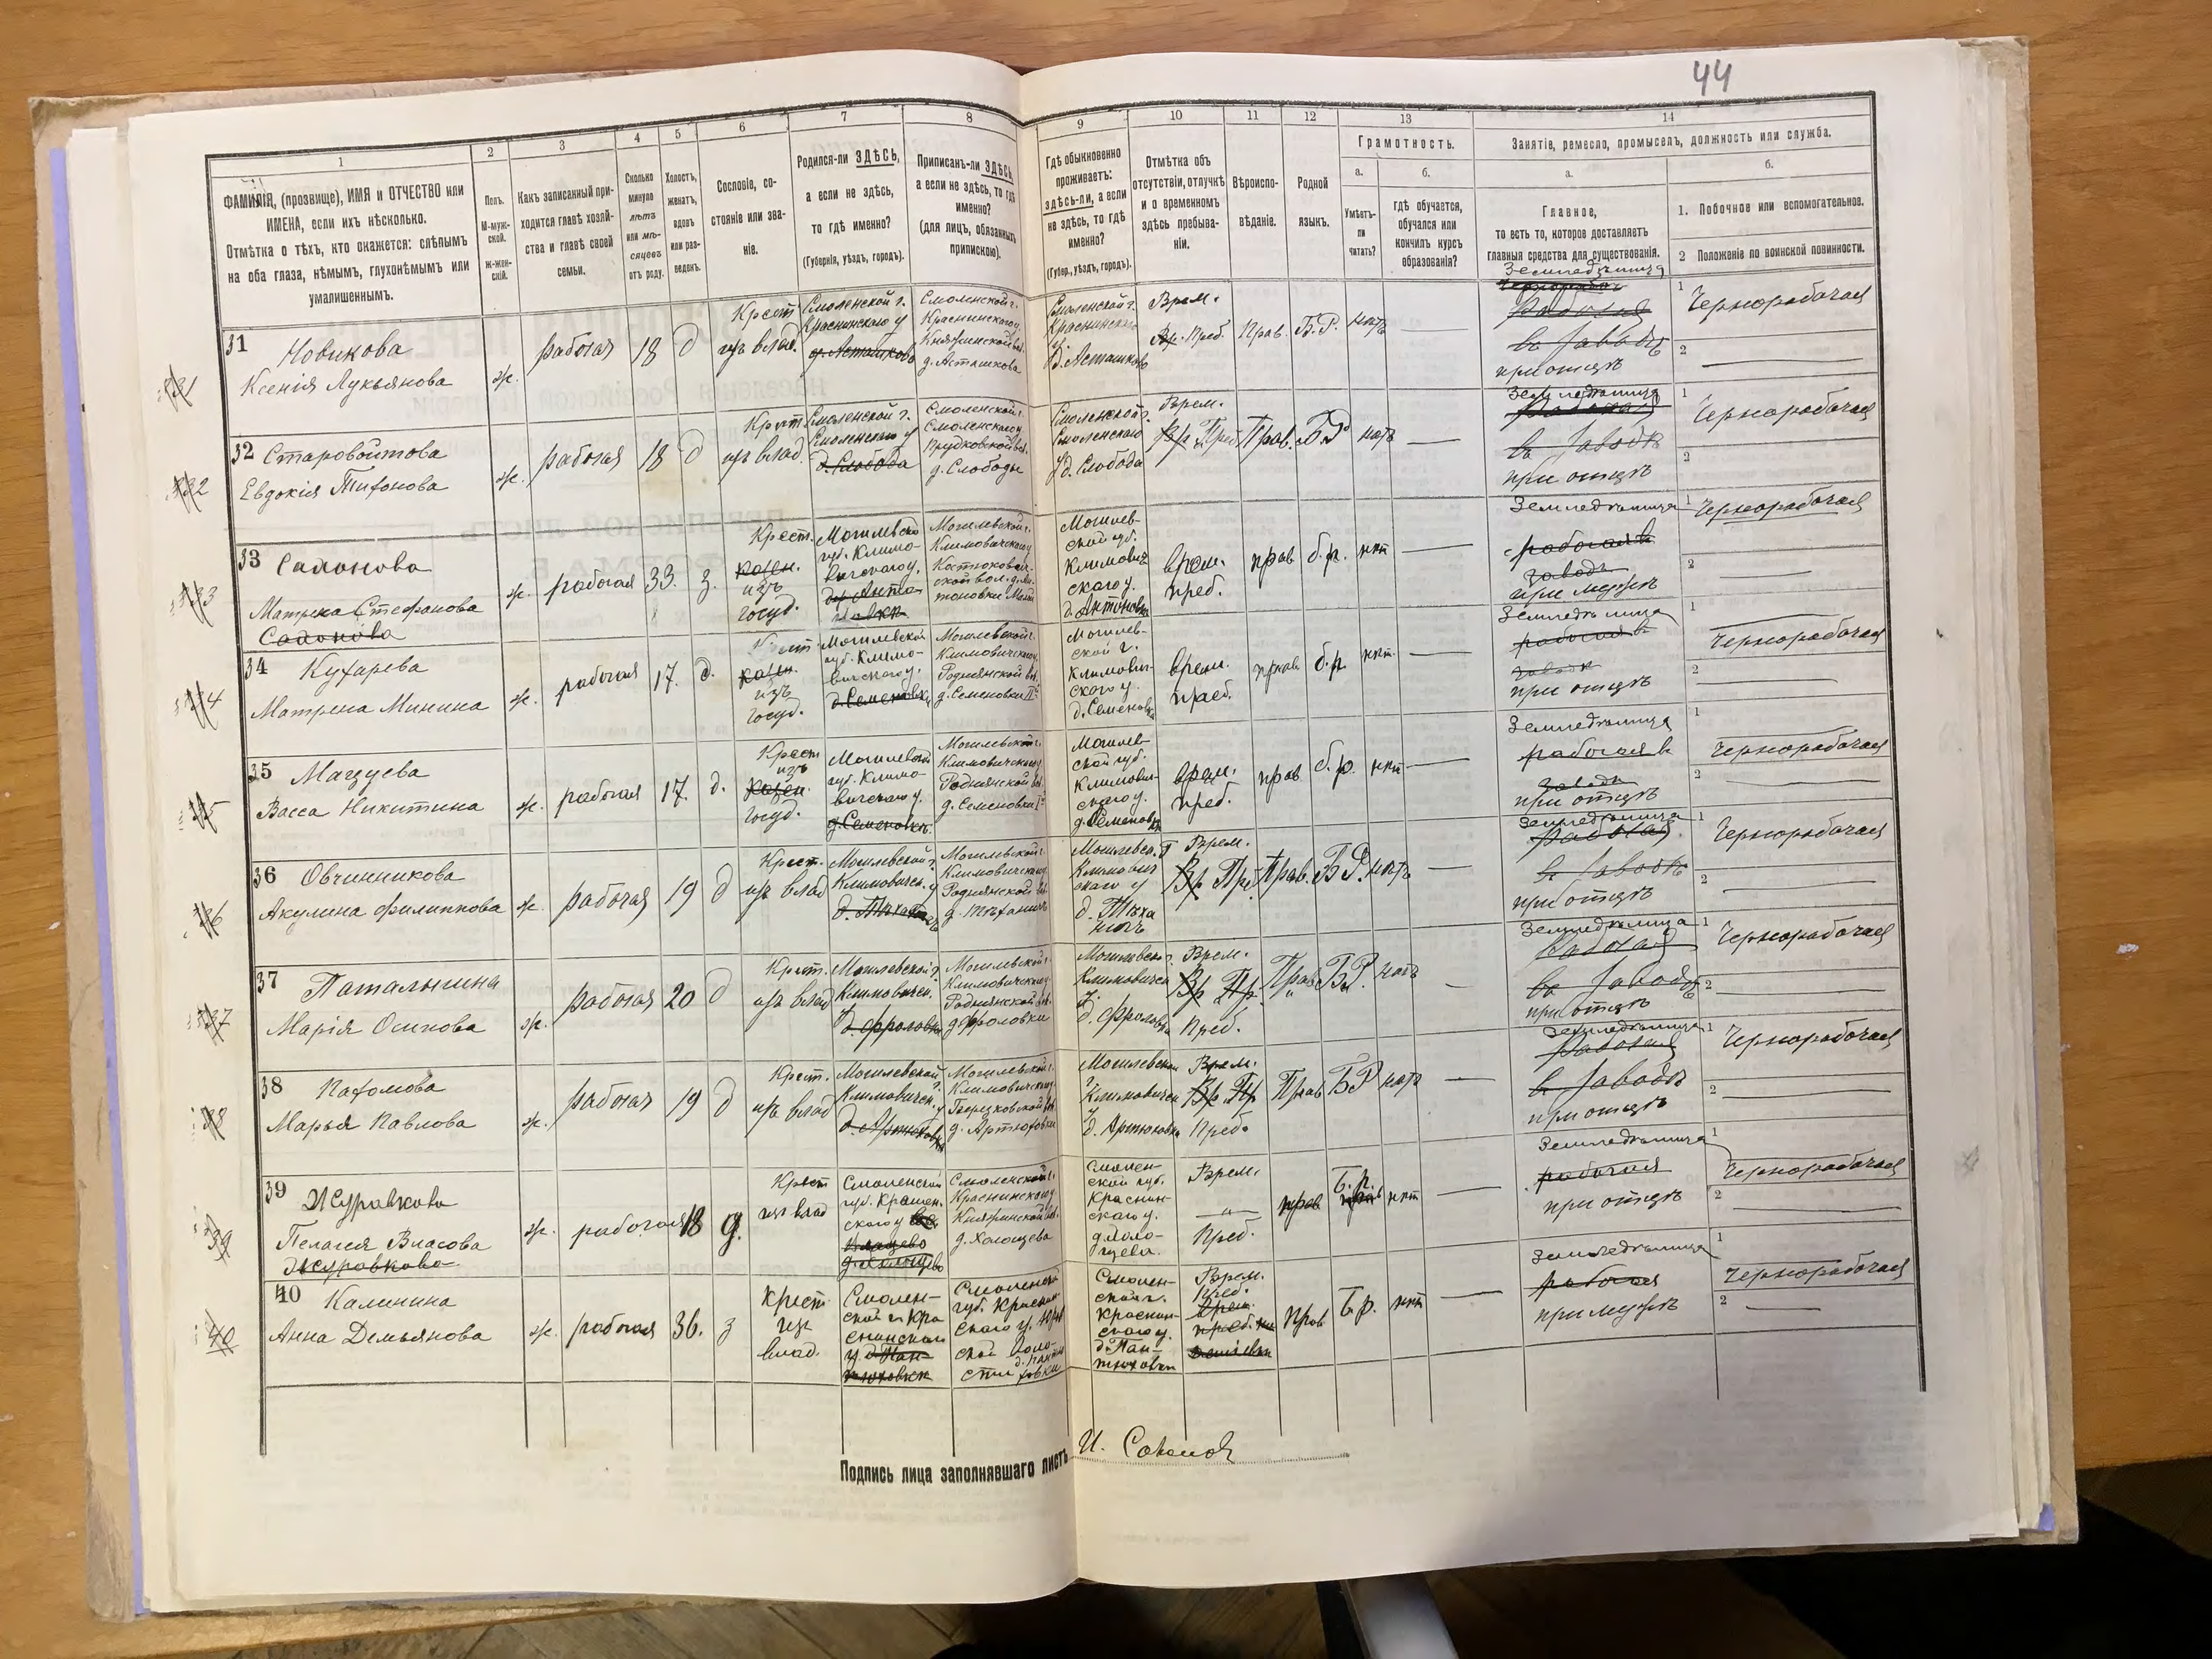 44
1
2
3
4
5
6
7
8
9
10
11
12
13
14
ФАМИЛІЯ, (прозвище), ИМЯ и ОТЧЕСТВО или
ИМЕНА, если ихъ нѣсколько.
Отмѣтка о тѣхъ, кто окажется: слѣпымъ
на оба глаза, нѣмымъ, глухонѣмымъ или
умалишеннымъ.
Полъ.
М-муж-
ской.
Ж-жен-
скій.
Какъ записанный при-
ходится главѣ хозяй-
ства и главѣ своей
семьи.
Сколько
минуло
лѣтъ
или мѣ-
сяцевъ
отъ роду.
Холостъ,
женатъ,
вдовъ
или раз-
веденъ.
Сословіе, со-
стояніе или зва-
ніе.
Родился-ли ЗДѢСЬ,
а если не здѣсь,
то гдѣ именно?
(Губернія, уѣздъ, городъ).
Приписанъ-ли ЗДѢСЬ,
а если не здѣсь, то гдѣ
именно?
(для лицъ, обязанныхъ
припискою).
Гдѣ обыкновенно
проживаетъ:
здѣсь-ли, а если
не здѣсь, то гдѣ
именно?
(Губер., уѣздъ, городъ).
Отмѣтка объ
отсутствіи, отлучкѣ
и о временномъ
здѣсь пребыва-
ніи.
Вѣроиспо-
вѣданіе.
Родной
языкъ.
Грамотность.
а.
Умѣетъ-
ли
читать?
б.
гдѣ обучается,
обучался или
кончилъ курсъ
образованія?
Занятіе, ремесло, промыселъ, должность или служба.
а.
Главное,
то есть то, которое доставляетъ
главныя средства для существованія.
б.
1. Побочное или вспомогательное.
2 Положеніе по воинской повинности.
31 Новикова
Ксенія Лукьянова
ж. рабочая 18 д
Крест.
изъ влад.
Смоленской г.
Краснинскаго у
д. Асташково
Смоленской г.
Краснинскаго у.
д. Асташкова
Смоленской г.
Краснинскаго
у.
д. Асташково
Врем.
Вр. Преб. Прав. Б.Р. нѣтъ
Земледѣлица
рабочая
въ заводѣ
при отцѣ
1 Чернорабочая
2
32 Старовойтова
Евдокія Тифонова
ж. рабочая 18 д
Крест
изъ влад.
Смоленской г.
Смоленскаго у
д. Слобода
Смоленской г.
Смоленскаго у.
Прудковской вол.
д. Слободы
Смоленской г.
Смоленскаго
у д. Слобода
Врем.
Вр Преб Прав. Б.Р. нѣтъ
Земледѣлица
рабочая
въ заводѣ
при отцѣ
1 Чернорабочая
2
33 Сахонова
Матрена Стефанова
Сахонова
ж. рабочая 33. з.
Крест.
казен.
изъ
госуд.
Могилевской
губ. Климо-
вичскаго у.
Могилевской г.
Климовичскаго у.
Могилев-
ской губ.
Климович
скаго у.
д. Антоновка
врем.
преб. прав. б.р. нѣт
Земледѣлица
рабочая въ
заводѣ
при мужѣ
1 Чернорабочая
2
34 Кухарева
Матрена Минина
ж. рабочая 17. д.
Крест
казен.
изъ
госуд.
Могилевской
губ. Климо-
вичскаго у.
д. Семеновка
Могилевской г.
Климовичскаго у.
Роднянской вол.
д. Семеновки II
Могилев-
ской г.
Климович-
скаго у.
д. Семеновка
врем.
преб. прав. б.р. нѣт.
Земледѣлица
рабочая въ
заводѣ
при отцѣ
1 Чернорабочая
2
35 Магдуева
Васса Никитина
ж. рабочая 17. д.
Крест
изъ
казен.
госуд.
Могилевской
губ. Климо-
вичскаго у.
д. Семеновкѣ.
Могилевской г.
Климовичскаго у.
Роднянской вол.
д. Семеновки I
Могилев-
ской губ.
Климович-
скаго у.
д. Семеновка
врем.
преб. прав б.р. нѣт
Земледѣлица
рабочая въ
заводѣ
при отцѣ
1 Чернорабочая
2
36 Овчинникова
Акулина Филиппова
ж. рабочая 19 д
Крест.
изъ влад
Могилевской г.
Климовичск. у
Могилевской г.
Климовичскаго у.
Роднянской вол.
Могилевск. г
Климович
скаго у
Врем.
Вр Пр Прав. Б.Р. нѣтъ
Земледѣлица
рабочая
въ заводѣ
при отцѣ
1 Чернорабочая
2
37 Паталыгина
Марія Осипова
ж. рабочая 20 д
Крест.
изъ влад
Могилевской г.
Климовичск.
д. Фроловка
Могилевской г.
Климовичскаго у.
Роднянской вол.
д. Фроловки
Могилевской г.
Климовичск
у.
д. Фроловка
Врем.
Вр. Пр.
Преб.
Прав Б.Р. нѣтъ
Земледѣлица
рабочая
въ заводѣ
при отцѣ
1 Чернорабочая
2
38 Пахомова
Марья Павлова
ж. рабочая 19 д
Крест.
изъ влад
Могилевской г.
Климовичск. у
д. Артюховка
Могилевской г.
Климовичскаго у.
д. Артюховки
Могилевской
г
Климовичск
у
д. Артюховка
Врем.
Вр. Пр
Преб.
Прав Б.Р нѣтъ
Земледѣлица
рабочая
въ заводѣ
при отцѣ
1 Чернорабочая
2
39 Журавкова
Пелагея Власова
Журавкова
ж. рабочая 18 д.
Крест
изъ влад
Смоленской
губ. Краснин.
скаго у
Смоленской г.
Краснинскаго у.
Смолен-
ской губ.
Краснин-
скаго у.
Врем.
Преб.
прав
Б.р.
нѣт
Земледѣлица
рабочая
при отцѣ
1 Чернорабочая
2
40 Калинина
Анна Демьянова
ж. рабочая 36. з
крест.
изъ
влад.
Смолен-
ской г. Кра
снинскаго
Смоленской
губ. Краснин-
скаго у.
Смолен-
ской г.
Краснин-
скаго у.
д. Пан-
тюховки
Врем.
Преб.
прав Б.р. нѣт
Земледѣлица
рабочая
при мужѣ
1 Чернорабочая
2
Подпись лица заполнявшаго листъ И. Соколов